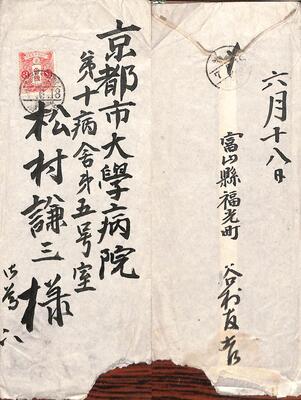 京都市大學病院
第十病舎第五号室
松村謙三様
六月十八日
富山縣福光町
谷村友吉